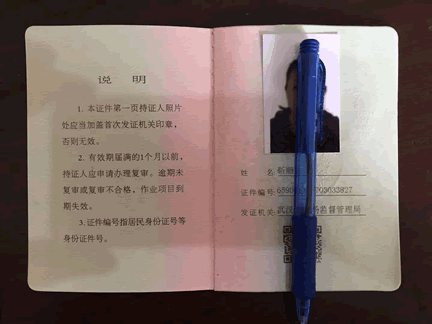 说 明
1. 本证件第一页持证人照片
处应当加盖首次发证机关印章,
否则无效。
2. 有效期届满的1个月以前,
持证人应申请办理复审。逾期未
复审或复审不合格,作业项目到
期失效。
3. 证件编号指居民身份证号等
身份证件号。
姓 名
证件编号
发证机关 监督管理局